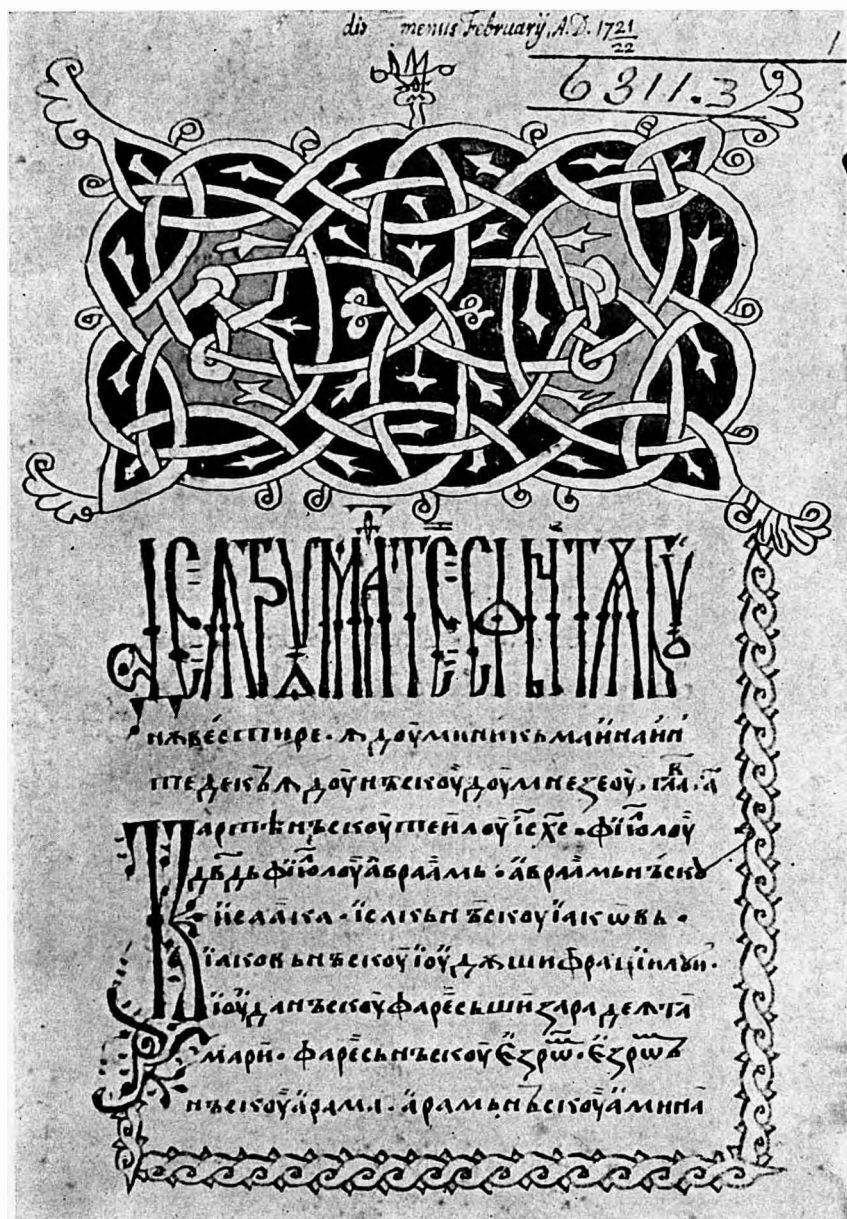 menus Februarij, A.D. 1721/22
1
6311.3
ДЕЛА МАТЕЕ СФЫНТѪ Бꙋ
нѫвестире · ꙟ доуминикь маи наин
те декъ ꙟ доу нъскоу доумнезеоу · гла҃в · а҃
Карте нъскоутеи лоу і҃с х҃с · фїюлоу
дв҃дь фїюлоу авраамь · авраамь нъскꙋ
исаака · ісакь нъскоу їакѡвь ·
їаковь нъскоу їоудѫ ши фраціи луи ·
їоуда нъскоу фаресь ши зара де ла та
мари · фаресь нъскоу езрѡм · езрѡмь
нъскоу арама · арамь нъскоу амина